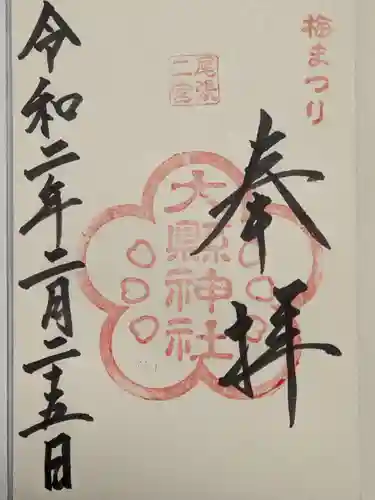 梅まつり
尾張
二宮
奉拝
大縣神社
令和二年二月二十五日